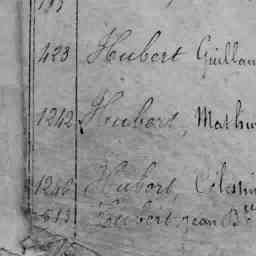 423 Hubert Guillau
1242 Hubert, Mathu
1246 Hubert, Célestin
613 Hubert jean Bte